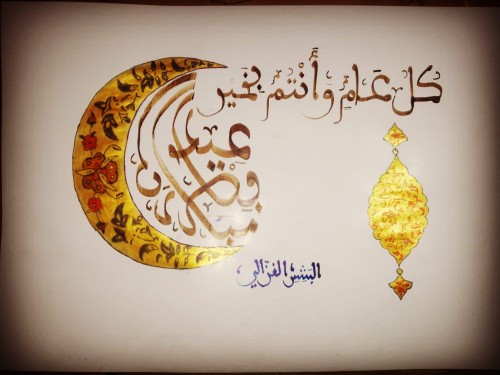 كل عَامٍ وَأَنْتُم بخَير
عيد
فطر
مبارك
البشير الغزّالي